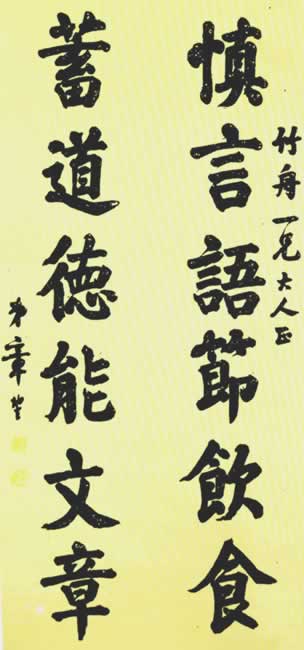 竹舟一兄大人正
慎言語節飲食
蓄道德能文章
弟章